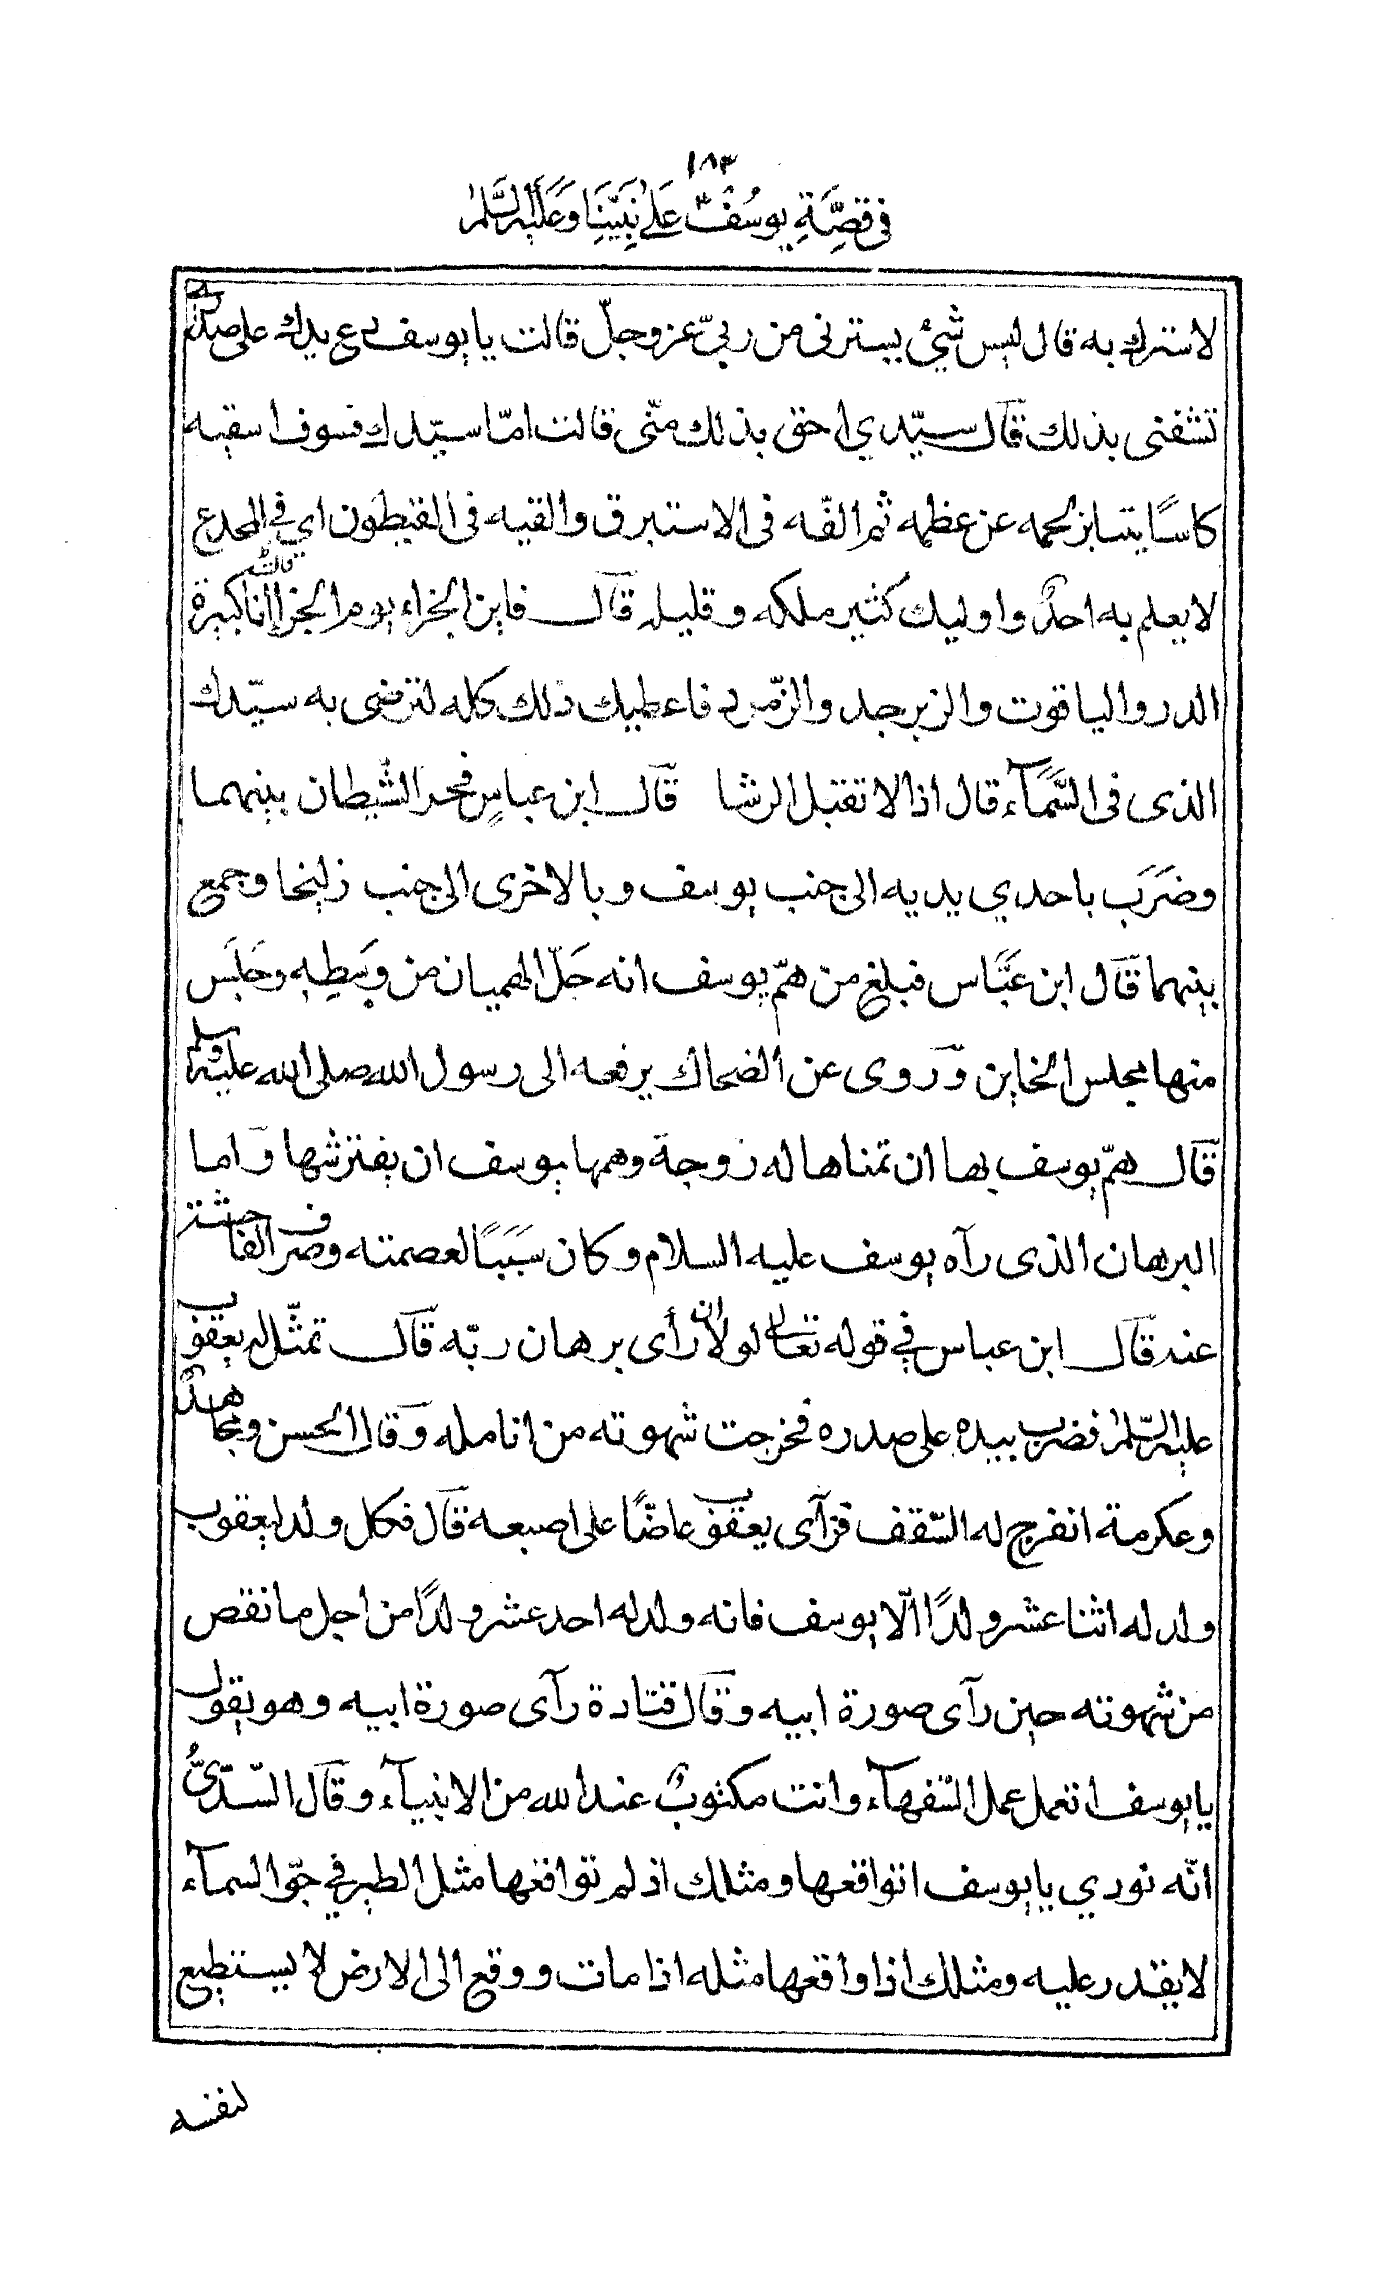 ١٨٣
في قصَّةِ يوسُفَ عَلىٰ نَبِيِّنَا وَعَلَيْهِ السَّلَامُ
لاسترك به قال ليس شيئ يسترنى من ربىّ عز وجلّ قالت يا يوسف ضع يدك على صدرى
تشفنى بذلك قال سيّدي احق بذلك منّى قالت امّا سيّدك فسوف اسقيه
كاسًا يتساير لحمه عن عظمه ثم الفّه فى الاستبرق والقيه فى القيطون اي في المخدع
لا يعلم به احدٌ واوليك كثير ملكه وقليله قال فاين الجزاء يوم الجزا قالت انا كبيرة
الدر والياقوت والزبرجد والزّمرد فاعطيك ذلك كله لترضى به سيّدك
الذى فى السَّمآء قال اذا لا تقبل الرشا قال ابن عباسٍ فجر الشّيطان بينهما
وضَرَب باحدي يديه الى جنب يوسف وبالاخرى الى جنب زليخا وجمع
بينهما قال ابن عَبَّاس فبلغ من همّ يوسف انه حَلّ الهميان من وسَطِه وجَلَس
منها مجلس الخاين وروى عن الضحاك يرفعه الى رسول الله صلى الله عليه وسلم
قال همّ يوسف بها ان تمناها له زوجة وهمها يوسف ان يفترشها واما
البرهان الذى رآه يوسف عليه السلام وكان سَبَبًا لعصمته وصرف الفاحشة
عنه قال ابن عباس في قوله تعالى لولا ان رأى برهان ربّه قال تمثّل له يعقوب
عليه السّلام فضرب بيده على صدره فخرجت شهوته من انامله وقال الحسن ومجاهدٌ
وعكرمة انفرج له السّقف فرآى يعقوب عاضًّا على اصبعه قال فكل ولد يعقوب
ولد له اثنا عشر ولدًا الّا يوسف فانه ولد له احد عشر ولدًا من اجل ما نقص
من شهوته حين رآى صورة ابيه وقال قتادة رآى صورة ابيه وهو يقول
يا يوسف اتعمل عمل السّفهآء وانت مكتوبٌ عند الله من الانبيآء وقال السّدّىُّ
انّه نودي يا يوسف اتواقعها ومثلك اذ لم تواقعها مثل الطير في جوّ السمآء
لا يقدر عليه ومثلك اذا واقعها مثله اذا مات ووقع الى الارض لا يستطيع
لنفسه